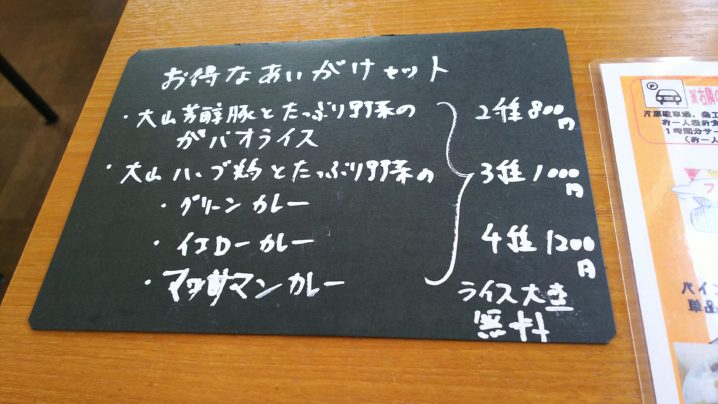 お得なあいがけセット
・大山芳醇豚とたっぷり野菜の
ガパオライス
・大山ハーブ鶏とたっぷり野菜の
・グリーンカレー
・イエローカレー
・マッサマンカレー
2種800円
3種1000円
4種1200円
ライス大盛
無料
P
※右隣の
お一人様お食
1時間分サー
(お一人
フ
パイン
単品